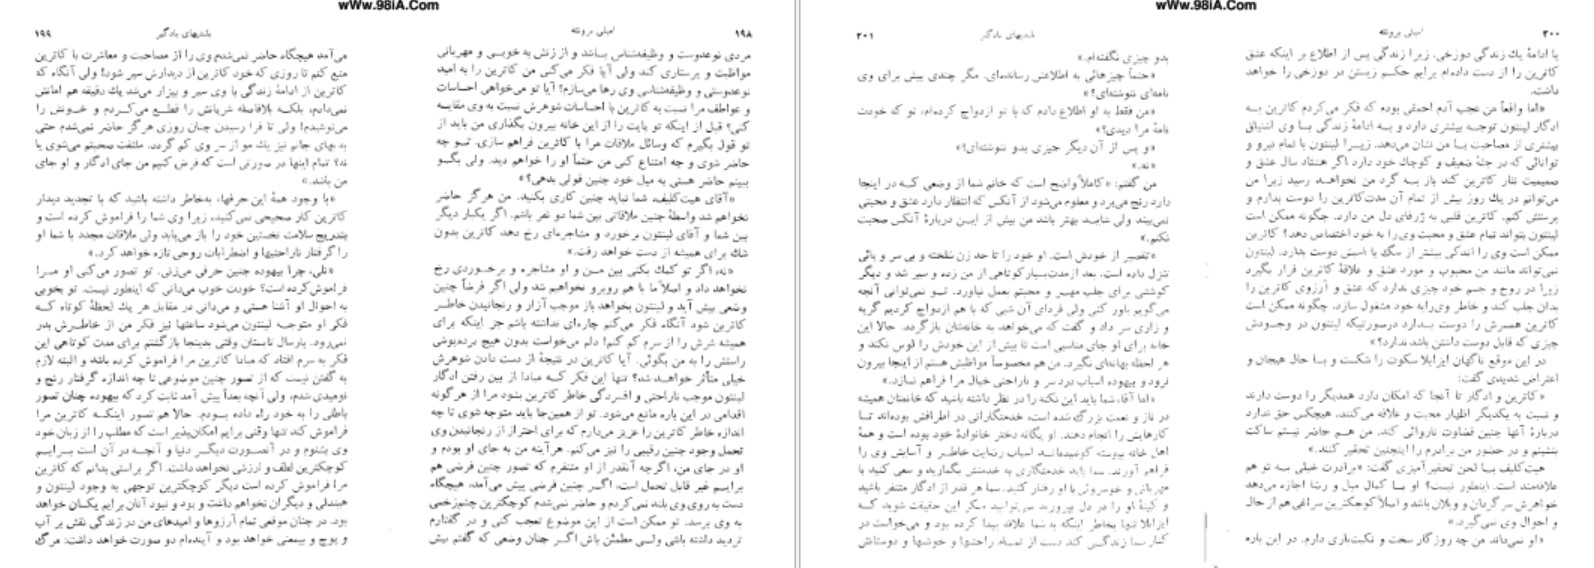 wWw.98iA.Com
۱۹۸
امیلی برونته
مردی نوعدوست و وظیفه‌شناس بباشد و از زنش به خوبی و مهربانی
مواظبت و پرستاری کند ولی آیا فکر می‌کنی من کاترین را به امید
نوعدوستی و وظیفه‌شناسی وی رها می‌سازم؟ آیا تو می‌خواهی احساسات
و عواطف مرا نسبت به کاترین با احساسات شوهرش نسبت به وی مقایسه
کنی؟ قبل از اینکه تو پایت را از این خانه بیرون بگذاری من باید از
تو قول بگیرم که وسائل ملاقات مرا با کاترین فراهم سازی. تو چه
حاضر شوی و چه امتناع کنی من حتماً او را خواهم دید. ولی بگو
ببینم حاضر هستی به میل خود چنین قولی بدهی؟»
«آقای هیت‌کلیف، شما نباید چنین کاری بکنید. من هرگز حاضر
نخواهم شد واسطهٔ چنین ملاقاتی بین شما دو نفر باشم. اگر یکبار دیگر
بین شما و آقای لینتون برخورد و مشاجره‌ای رخ دهد کاترین بدون
شك برای همیشه از دست خواهد رفت.»
«نه، اگر تو کمك بکنی بین من و او مشاجره و برخوردی رخ
نخواهد داد و اصلاً ما با هم روبرو نخواهیم شد ولی اگر فرضاً چنین
وضعی پیش آید و لینتون بخواهد باز موجب آزار و رنجانیدن خاطر
کاترین شود آنگاه فکر می‌کنم چاره‌ای نداشته باشم جز اینکه برای
همیشه شرش را از سرم کم کنم! دلم می‌خواست بدون هیچ پرده‌پوشی
راستش را به من بگوئی. آیا کاترین در نتیجهٔ از دست دادن شوهرش
خیلی متأثر خواهد شد؟ تنها این فکر که مبادا از بین رفتن ادگار
لینتون موجب ناراحتی و افسردگی خاطر کاترین بشود مرا از هرگونه
اقدامی در این باره مانع می‌شود. تو از همین‌جا باید متوجه شوی تا چه
اندازه خاطر کاترین را عزیز می‌دارم که برای احتراز از رنجانیدن وی
تحمل وجود چنین رقیبی را نیز می‌کنم. هرآینه من به جای او بودم و
او در جای من، اگرچه آنقدر از او متنفرم که تصور چنین فرضی هم
برایم غیر قابل تحمل است، اگر چنین فرضی پیش می‌آمد، هیچگاه
دست به روی وی بلند نمی‌کردم و حاضر نمی‌شدم کوچکترین چشم‌زخمی
به وی برسد. تو ممکن است از این موضوع تعجب کنی و در گفتارم
تردید داشته باشی ولی مطمئن باش اگر چنان وضعی که گفتم پیش
بلندیهای بادگیر
۱۹۹
می‌آمد هیچگاه حاضر نمی‌شدم وی را از مصاحبت و معاشرت با کاترین
منع کنم تا روزی که خود کاترین از دیدارش سیر شود! ولی آنگاه که
کاترین از ادامهٔ زندگی با وی سیر و بیزار می‌شد یك دقیقه هم امانش
نمی‌دادم، بلکه بلافاصله شریانش را قطع می‌کردم و خونش را
می‌نوشیدم! ولی تا فرا رسیدن چنان روزی هرگز حاضر نمی‌شدم حتی
به بهای جانم نیز یك مو از سر وی کم گردد. ملتفت صحبتم می‌شوی یا
نه؟ تمام اینها در صورتی است که فرض کنیم من جای ادگار و او جای
من باشد.»
«با وجود همهٔ این حرفها، به‌خاطر داشته باشید که با تجدید دیدار
کاترین کار صحیحی نمی‌کنید، زیرا وی شما را فراموش کرده است و
بتدریج سلامت نخستین خود را باز می‌یابد ولی ملاقات مجدد با شما او
را گرفتار ناراحتیها و اضطرابات روحی تازه خواهد کرد.»
«نلی، چرا بیهوده چنین حرفی می‌زنی. تو تصور می‌کنی او مرا
فراموش‌کرده است؟ خودت خوب می‌دانی که اینطور نیست. تو بخوبی
به احوال او آشنا هستی و می‌دانی در مقابل هر یك لحظهٔ کوتاه که
فکر او متوجه لینتون می‌شود ساعتها نیز فکر من از خاطرش بدر
نمی‌رود. پارسال تابستان وقتی بدینجا بازگشتم برای مدت کوتاهی این
فکر به سرم افتاد که مبادا کاترین مرا فراموش کرده باشد و البته لازم
به گفتن نیست که از تصور چنین موضوعی تا چه اندازه گرفتار رنج و
نومیدی شدم، ولی آنچه بعداً پیش آمد ثابت کرد که بیهوده چنان تصور
باطلی را به خود راه داده بودم. حالا هم تصور اینکه کاترین مرا
فراموش کند تنها وقتی برایم امکان‌پذیر است که مطلب را از زبان خود
وی بشنوم و در آنصورت دیگر دنیا و آنچه در آن است برایم
کوچکترین لطف و ارزشی نخواهد داشت. اگر براستی بدانم که کاترین
مرا فراموش کرده است دیگر کوچکترین توجهی به وجود لینتون و
هیندلی و دیگران نخواهم داشت و بود و نبود آنان برایم یکسان خواهد
بود. در چنان موقعی تمام آرزوها و امیدهای من در زندگی نقش بر آب
و پوچ و بیمعنی خواهد بود و آینده‌ام دو صورت خواهد داشت: مرگ
wWw.98iA.Com
۲۰۰
امیلی برونته
یا ادامهٔ یك زندگی دوزخی. زیرا زندگی پس از اطلاع بر اینکه عشق
کاترین را از دست داده‌ام برایم حکم زیستن در دوزخی را خواهد
داشت.
«اما واقعاً من عجب آدم احمقی بودم که فکر می‌کردم کاترین به
ادگار لینتون توجه بیشتری دارد و به ادامهٔ زندگی با وی اشتیاق
بیشتری از مصاحبت با من نشان می‌دهد. زیرا لینتون با تمام نیرو و
توانائی که در جثهٔ ضعیف و کوچك خود دارد اگر هشتاد سال عشق و
صمیمیت نثار کاترین کند باز به گرد من نخواهد رسید زیرا من
می‌توانم در یك روز بیش از تمام آن مدت کاترین را دوست بدارم و
پرستش کنم. کاترین قلبی به ژرفای دل من دارد. چگونه ممکن است
لینتون بتواند تمام عشق و محبت وی را به خود اختصاص دهد؟ کاترین
ممکن است وی را اندکی بیشتر از سگ یا اسبش دوست بدارد. لینتون
نمی‌تواند مانند من محبوب و مورد عشق و علاقهٔ کاترین قرار بگیرد
زیرا در روح و جسم خود چیزی ندارد که عشق و آرزوی کاترین را
بدان جلب کند و خاطر وی‌را‌به خود مشغول سازد. چگونه ممکن است
کاترین همسرش را دوست بدارد درصورتیکه لینتون در وجودش
چیزی که قابل دوست داشتن باشد ندارد؟»
در این موقع ناگهان ایزابلا سکوت را شکست و با حال هیجان و
اعتراض شدیدی گفت:
«کاترین و ادگار تا آنجا که امکان دارد همدیگر را دوست دارند
و نسبت به یکدیگر اظهار محبت و علاقه می‌کنند. هیچکس حق ندارد
دربارهٔ آنها چنین قضاوت ناروائی کند. من هم حاضر نیستم ساکت
بنشینم و در حضور من برادرم را اینچنین تحقیر کنند.»
هیت‌کلیف با لحن تحقیرآمیزی گفت: «برادرت خیلی به تو هم
علاقه‌مند است. اینطور نیست؟ او با کمال میل و رضا اجازه می‌دهد
خواهرش سرگردان و ویلان باشد و اصلاً کوچکترین سراغی هم از حال
و احوال وی نمی‌گیرد.»
«او نمی‌داند من چه روزگار سخت و نکبت‌باری دارم. در این باره
بلندیهای بادگیر
۲۰۱
بدو چیزی نگفته‌ام.»
«حتماً چیزهائی به اطلاعش رسانده‌ای. مگر چندی پیش برای وی
نامه‌ای ننوشته‌ای؟»
«من فقط به او اطلاع دادم که با تو ازدواج کرده‌ام، تو که خودت
نامهٔ مرا دیدی؟»
«و پس از آن دیگر چیزی بدو ننوشته‌ای؟»
«نه.»
من گفتم: «کاملاً واضح است که خانم شما از وضعی که در اینجا
دارد رنج می‌برد و معلوم می‌شود از آنکس که انتظار دارد عشق و محبتی
نمی‌بیند ولی شاید بهتر باشد من بیش از این دربارهٔ آنکس صحبت
نکنم.»
«تقصیر از خودش است. او خود را تا حد زن شلخته و بی سر و پائی
تنزل داده است. بعد ازمدت‌بسیارکوتاهی از من زده و سیر شد و دیگر
کوششی برای جلب مهر و محبتم بعمل نیاورد. تو نمی‌توانی آنچه
می‌گویم باور کنی ولی فردای آن شبی که با هم ازدواج کردیم گریه
و زاری سر داد و گفت که می‌خواهد به خانه‌شان بازگردد. حالا این
خانه برای او جای مناسبی است تا بیش از این خودش را لوس نکند و
هر لحظه بهانه‌ای نگیرد. من هم مخصوصاً مواظبش هستم از اینجا بیرون
نرود و بیهوده اسباب دردسر و ناراحتی خیال مرا فراهم نسازد.»
«اما آقا، شما باید این نکته را در نظر داشته باشید که خانمتان همیشه
در ناز و نعمت بزرگ شده است، خدمتگارانی در اطرافش بوده‌اند تا
کارهایش را انجام دهند. او یگانه دختر خانوادهٔ خود بوده است و همهٔ
اهل خانه پیوسته کوشیده‌اند اسباب رضایت خاطر و آسایش وی را
فراهم آورند. شما باید خدمتگاری به خدمتش بگمارید و سعی کنید با
مهربانی و خوشروئی با او رفتار کنید. شما هر قدر از ادگار متنفر باشید
و کینهٔ او را در دل بپرورید نمی‌توانید منکر این حقیقت شوید که
ایزابلا تنها بخاطر اینکه به شما علاقه پیدا کرده بود و می‌خواست در
کنار شما زندگی کند دست از تمام راحتیها و خوشیها و دوستانش